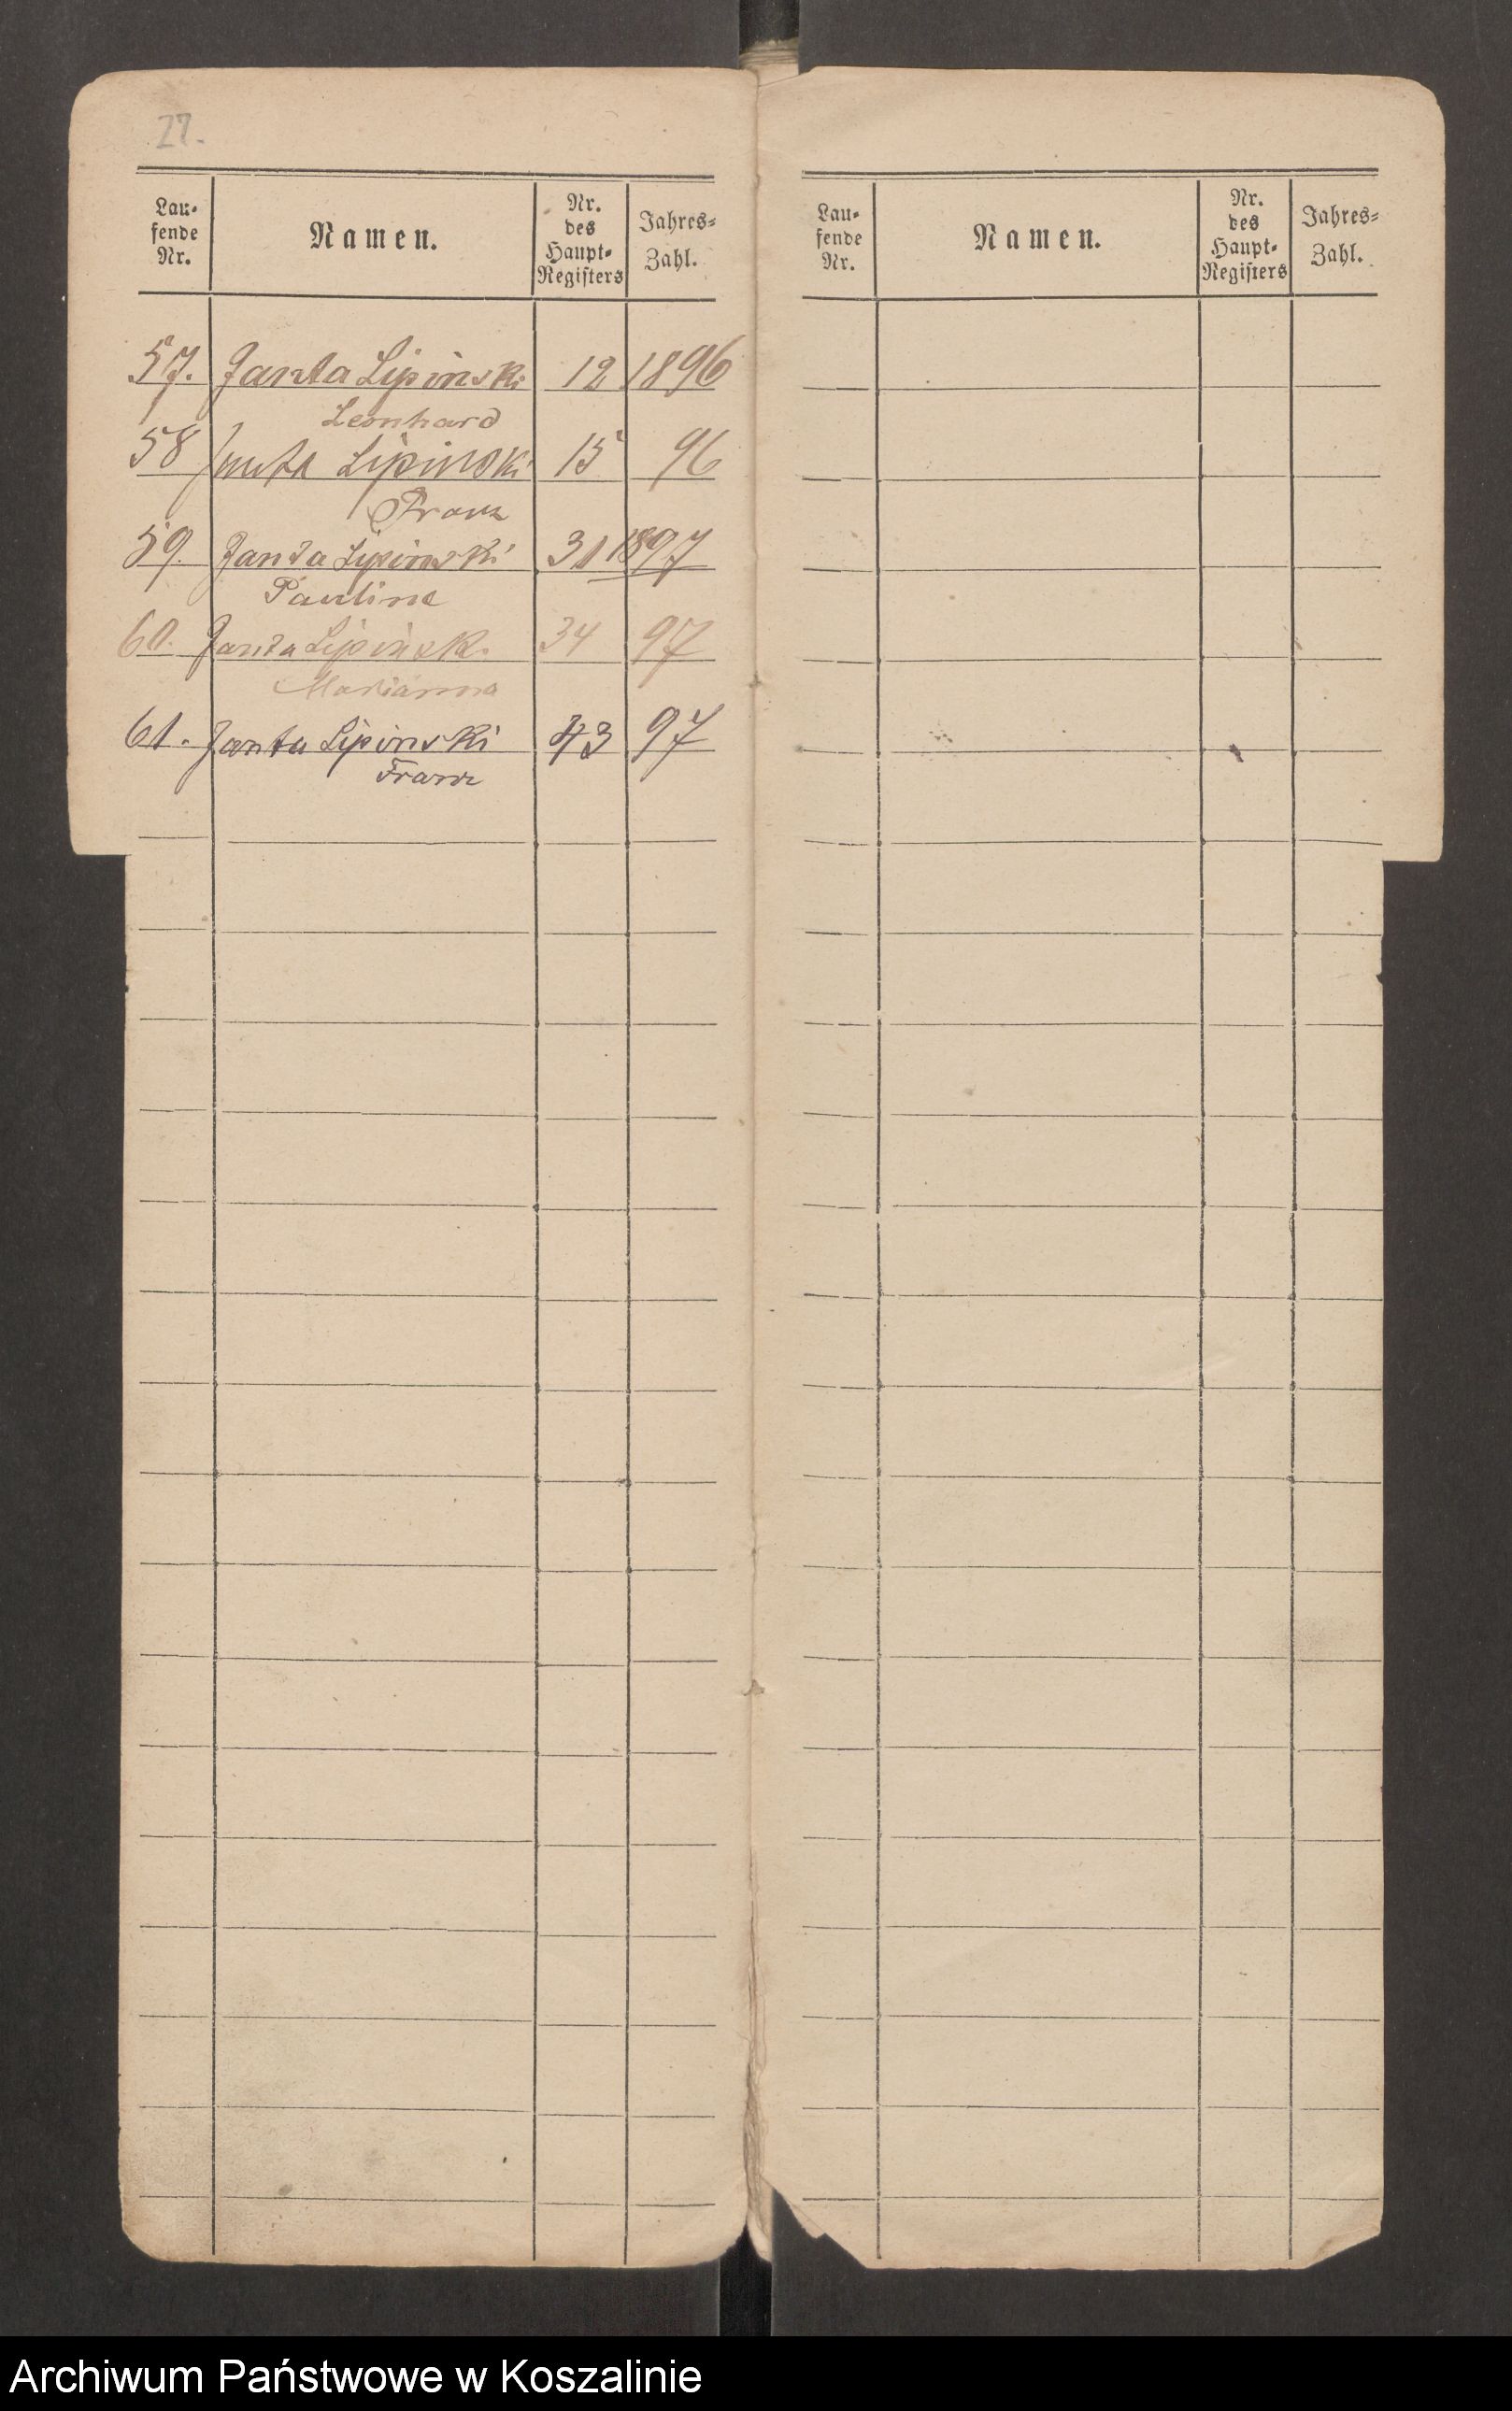 27.
Lau-
fende
Nr.
Namen.
Nr.
des
Haupt-
Registers
Jahres-
Zahl.
57. Janta Lipinski 12 1896
Leonhard
58 Janta Lipinski 15 96
Franz
59. Janta Lipinski 31 1897
Paulina
60. Janta Lipinski 34 97
Marianna
61. Janta Lipinski 43 97
Franz
Lau-
fende
Nr.
Namen.
Nr.
des
Haupt-
Registers
Jahres-
Zahl.
Archiwum Państwowe w Koszalinie